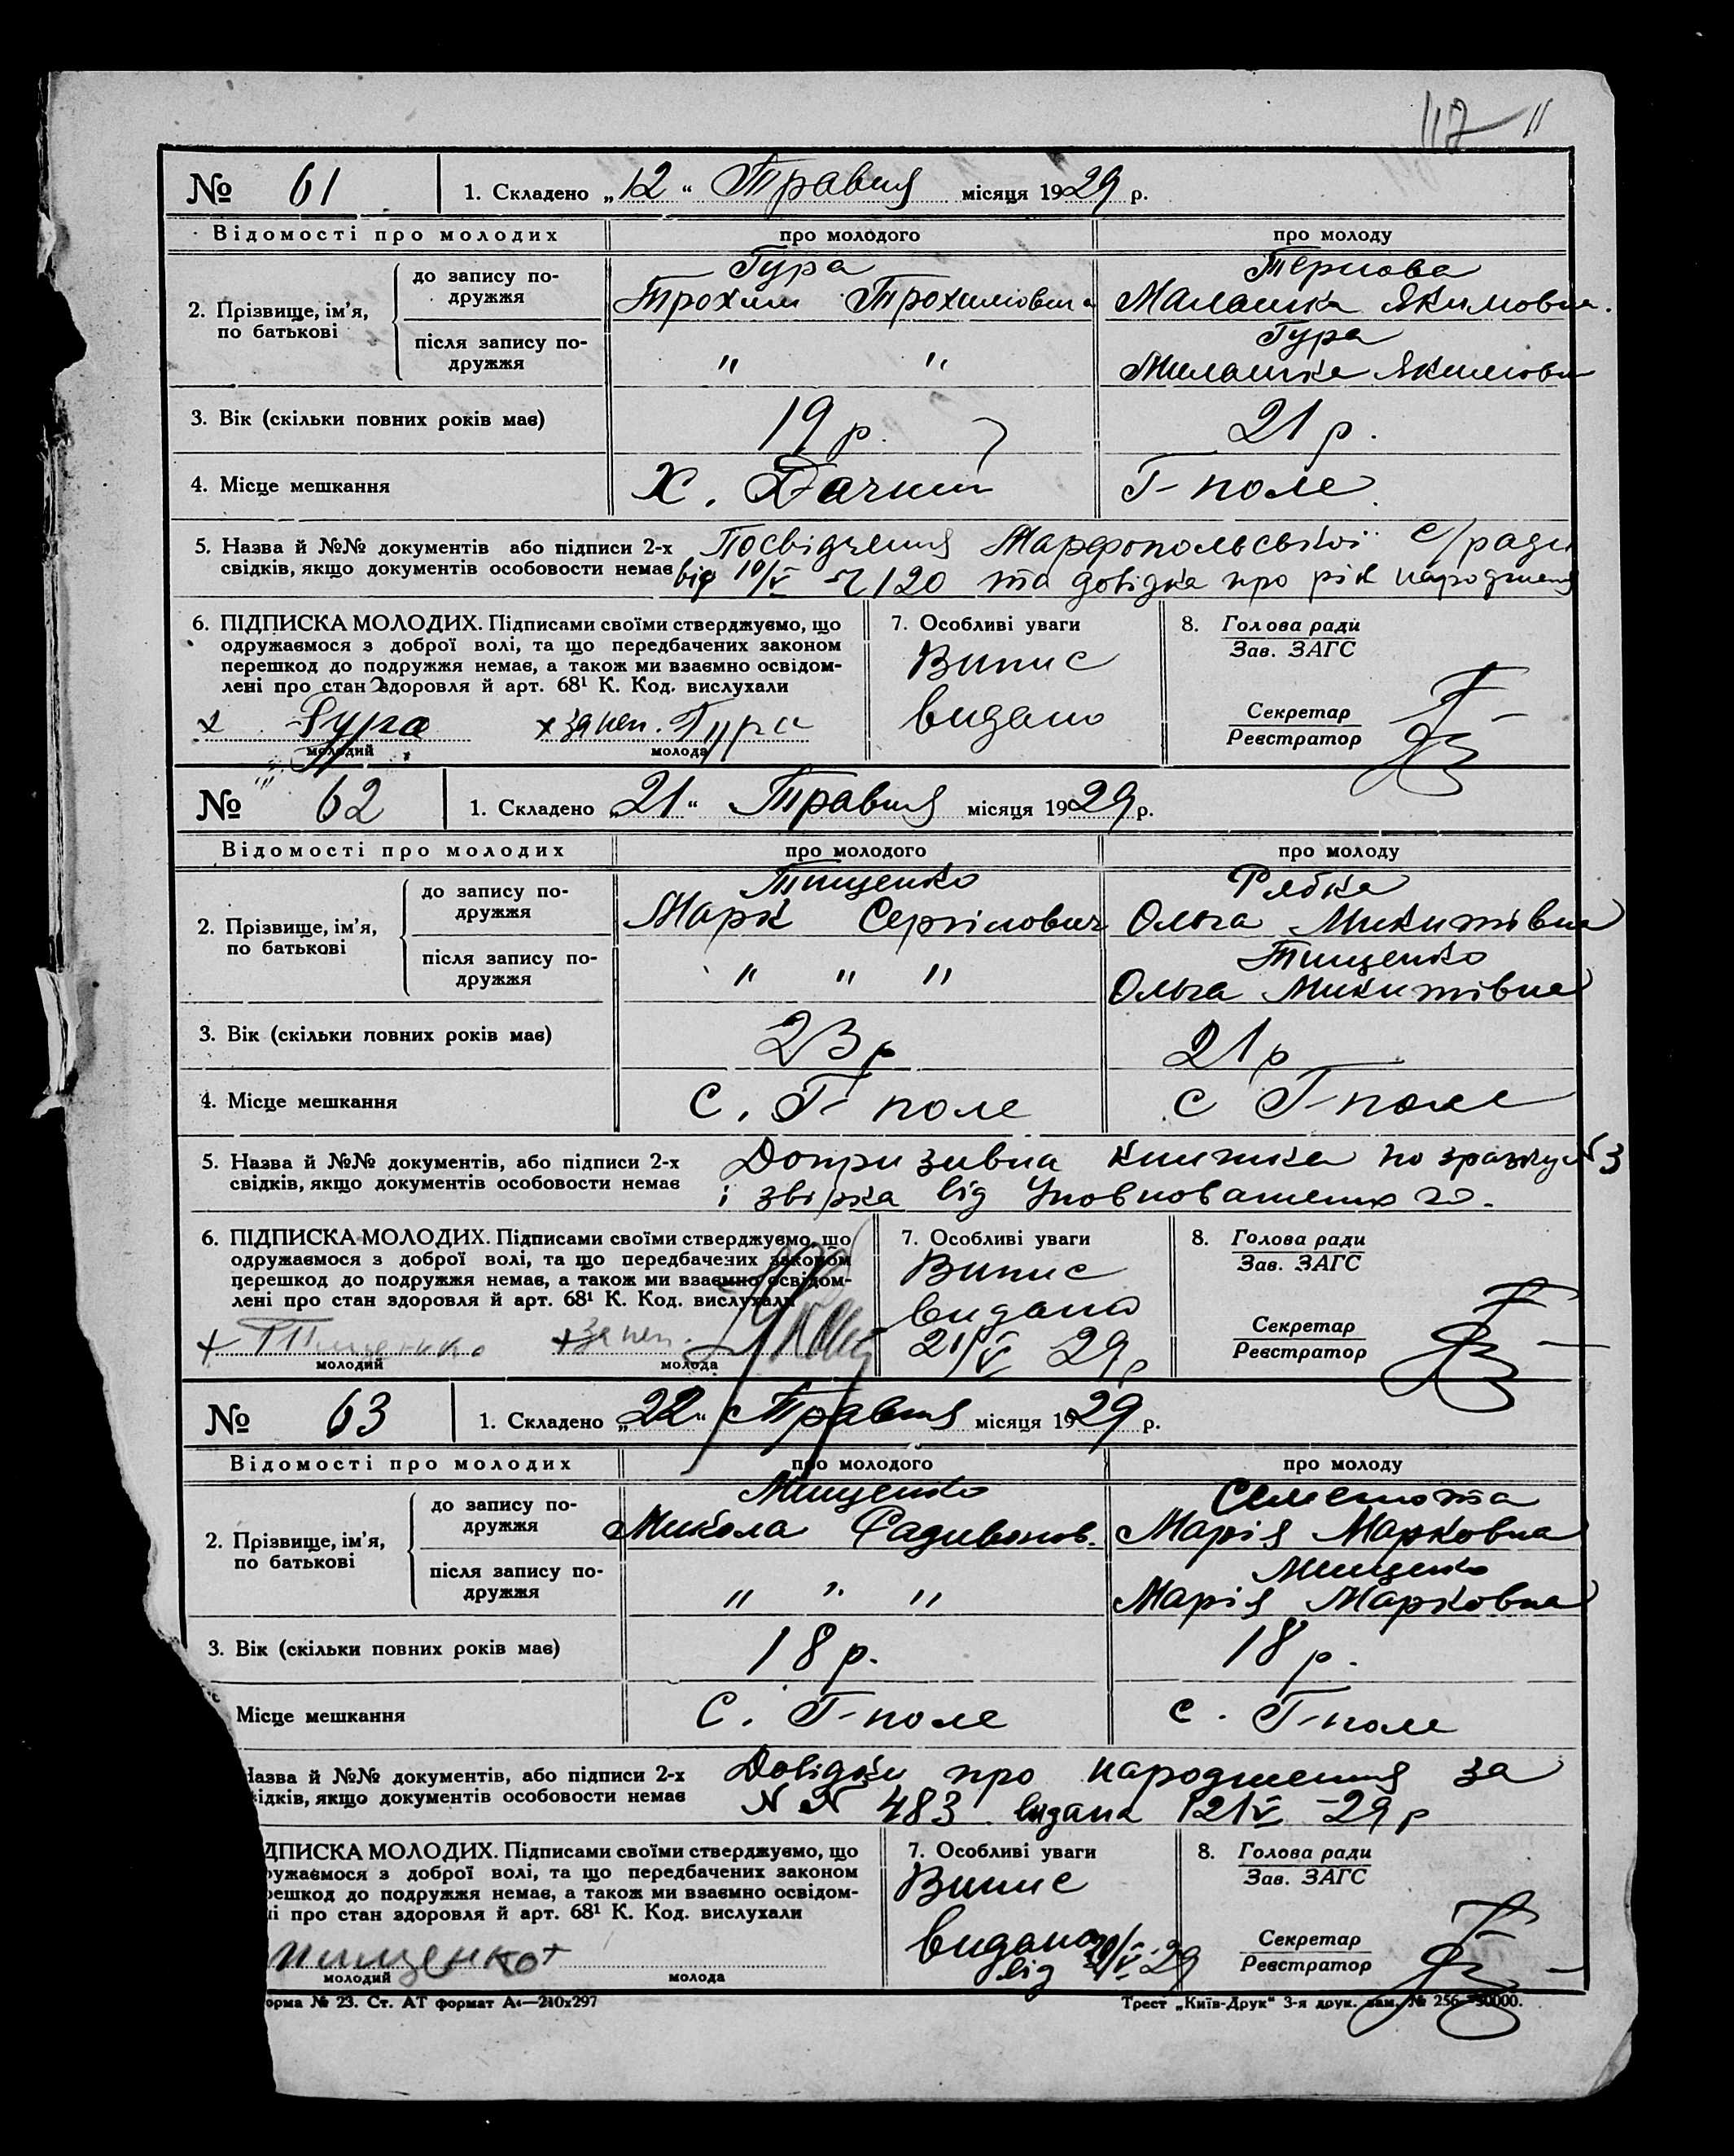 117
№ 61 1. Складено „12“ Травня місяця 1929 р.
Відомості про молодих про молодого про молоду
2. Прізвище, ім’я, по батькові
до запису подружжя
Гура
Трохим Трохимович
Тернова
Малашка Якимовна.
після запису подружжя
" "
Гура
Малашка Якимовн
3. Вік (скільки повних років має) 19 р. 21 р.
4. Місце мешкання Х. Дачний Г-поле
5. Назва й №№ документів або підписи 2-х Посвідчення Марфопольської с/ради
свідків, якщо документів особовости немає від 10/V № 120 та довідка про рік народження
6. ПІДПИСКА МОЛОДИХ. Підписами своїми стверджуємо, що
одружаємося з доброї волі, та що передбачених законом
перешкод до подружжя немає, а також ми взаємно освідом-
лені про стан здоровля й арт. 68¹ К. Код. вислухали
х Гура х за неп. Гура
молодий молода
7. Особливі уваги
Випис
видано
8. Голова ради
Зав. ЗАГС
Секретар
Реєстратор
№ 62 1. Складено „21“ Травня місяця 1929 р.
Відомості про молодих про молодого про молоду
2. Прізвище, ім’я, по батькові
до запису подружжя
Тищенко
Марк Сергійович
Рябка
Ольга Микитівна
після запису подружжя
" " "
Тищенко
Ольга Микитівна
3. Вік (скільки повних років має) 23 р 21 р
4. Місце мешкання С. Г-поле с Г-поле
5. Назва й №№ документів, або підписи 2-х Допризивна книжка по зразку №3
свідків, якщо документів особовости немає і звірка від Уповноваженого.
6. ПІДПИСКА МОЛОДИХ. Підписами своїми стверджуємо, що
одружаємося з доброї волі, та що передбачених законом
перешкод до подружжя немає, а також ми взаємно освідом-
лені про стан здоровля й арт. 68¹ К. Код. вислухали
х Тищенко х за неп.
молодий молода
7. Особливі уваги
Випис
видано
21/V 29 р
8. Голова ради
Зав. ЗАГС
Секретар
Реєстратор
№ 63 1. Складено „22“ Травня місяця 1929 р.
Відомості про молодих про молодого про молоду
2. Прізвище, ім’я, по батькові
до запису подружжя
Мищенко
Микола Радивонов.
Марія Марковна
після запису подружжя
" " "
Мищенко
Марія Марковна
3. Вік (скільки повних років має) 18 р. 18 р.
Місце мешкання С. Г-поле с. Г-поле
Назва й №№ документів, або підписи 2-х Довідки про народження за
свідків, якщо документів особовости немає № № 483 видана 21 V -29 р
ДПИСКА МОЛОДИХ. Підписами своїми стверджуємо, що
ружаємося з доброї волі, та що передбачених законом
решкод до подружжя немає, а також ми взаємно освідом-
ні про стан здоровля й арт. 68¹ К. Код. вислухали
мищенко +
молодий молода
7. Особливі уваги
Випис
видано
від /V-29
8. Голова ради
Зав. ЗАГС
Секретар
Реєстратор
орма № 23. Ст. АТ формат А₄—210х297 Трест „Київ-Друк“ 3-я друк. зам. № 256—30000.